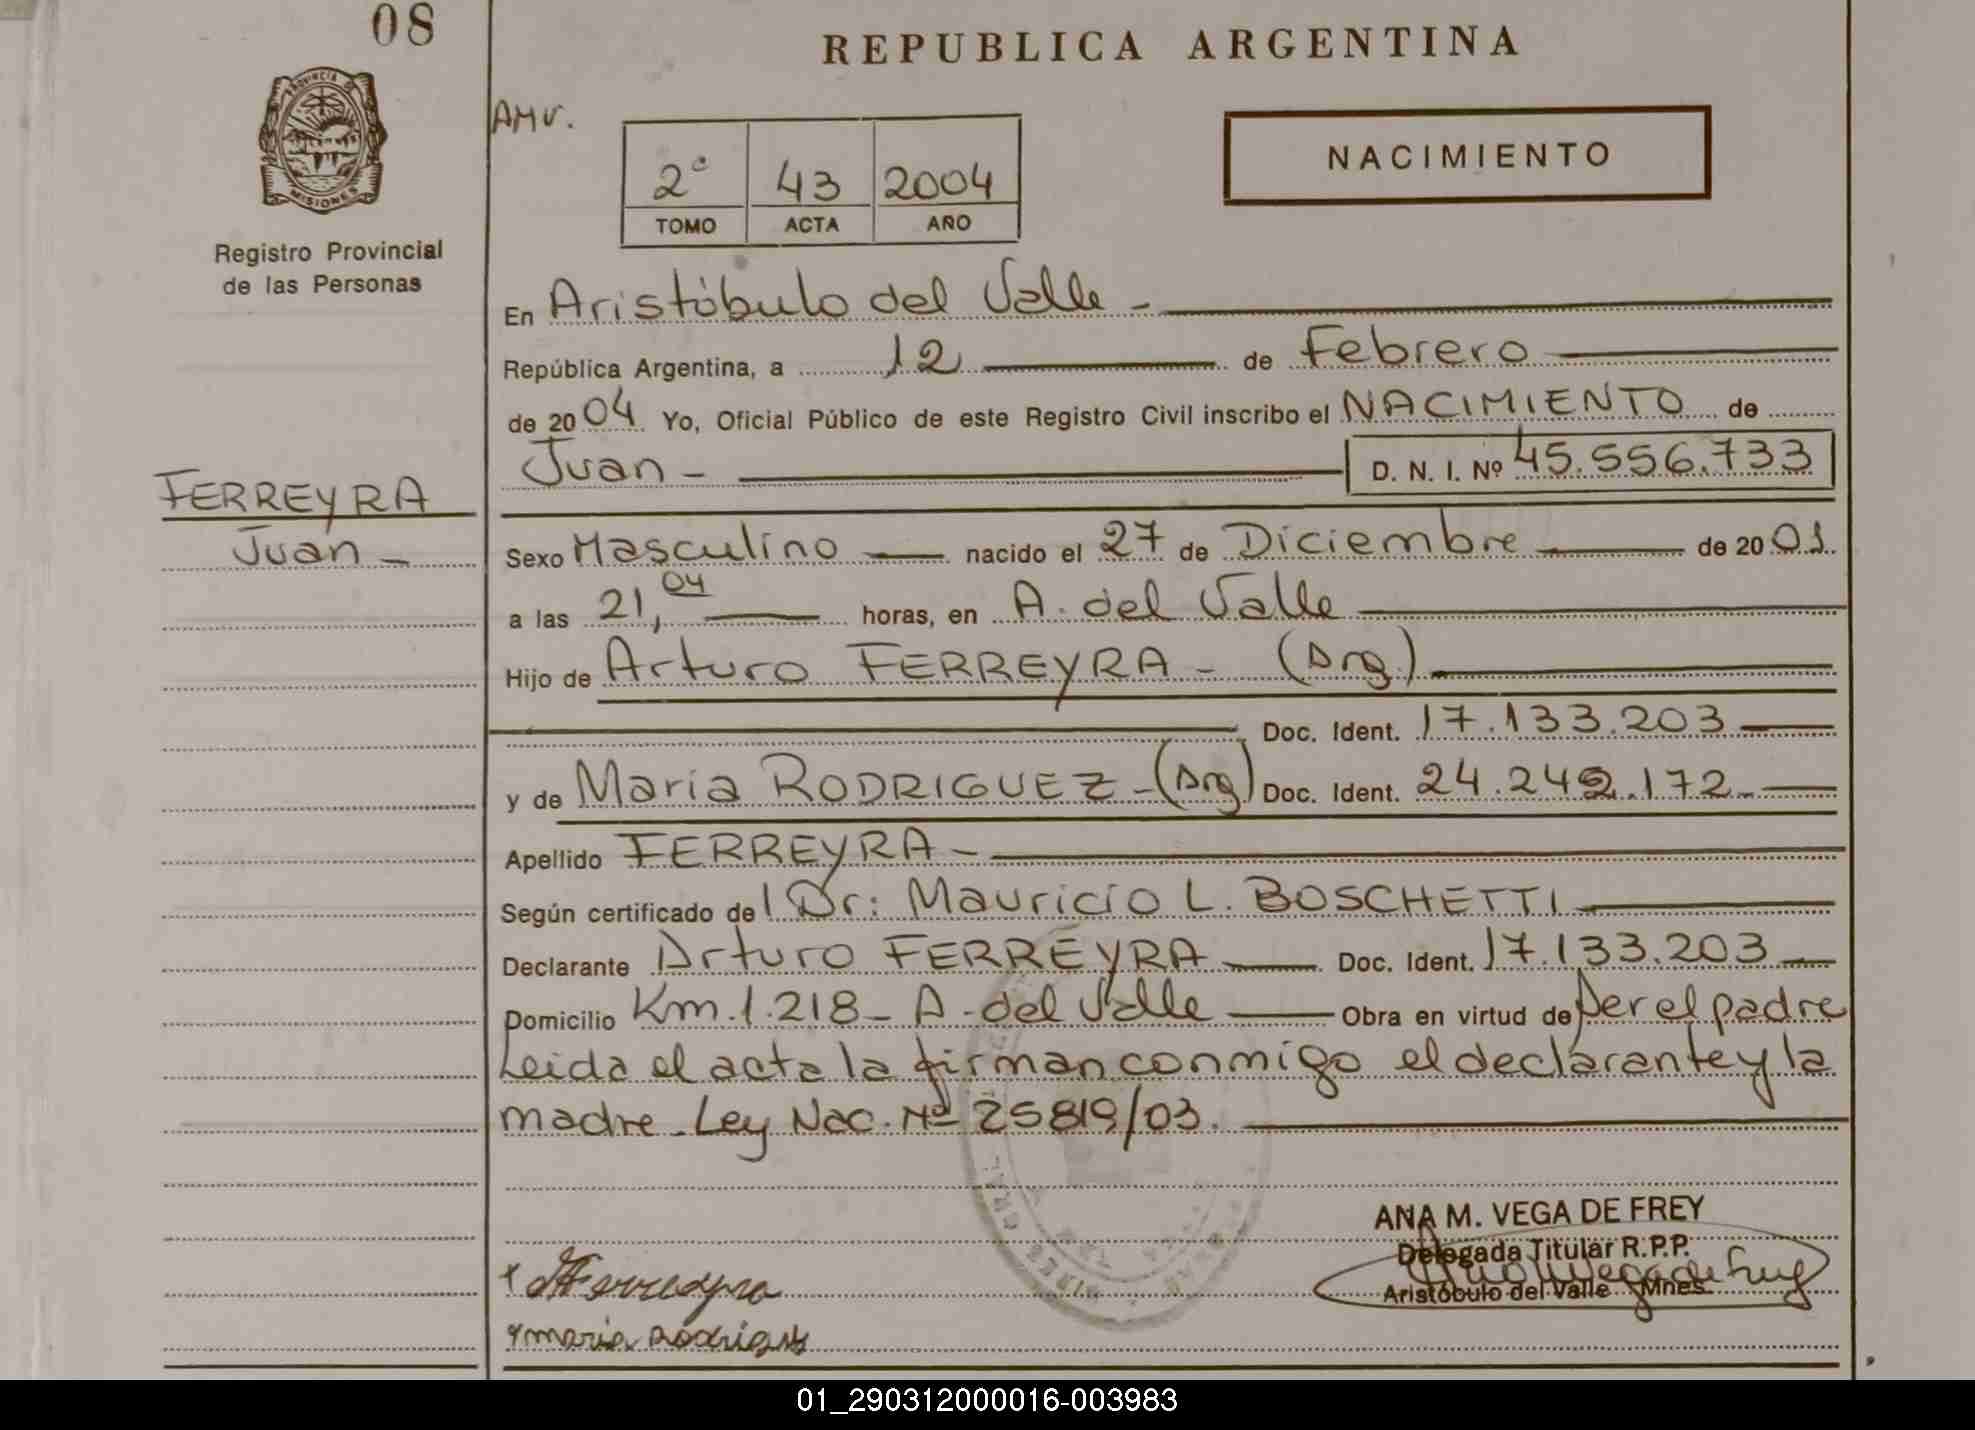 08
REPUBLICA ARGENTINA
AMV.
PROVINCIA DE
MISIONES
Registro Provincial
de las Personas
2º 43 2004
TOMO ACTA AÑO
NACIMIENTO
En Aristóbulo del Valle -
República Argentina, a 12 de Febrero
de 2004 Yo, Oficial Público de este Registro Civil inscribo el NACIMIENTO de
Juan - D. N. I. Nº 45.556.733
FERREYRA
Juan -
Sexo Masculino nacido el 27 de Diciembre de 2001
a las 21,04 horas, en A. del Valle
Hijo de Arturo FERREYRA - (Arg.)
Doc. Ident. 17.133.203
y de María RODRIGUEZ - (Arg) Doc. Ident. 24.242.172
Apellido FERREYRA -
Según certificado del Dr: Mauricio L. BOSCHETTI
Declarante Arturo FERREYRA Doc. Ident. 17.133.203
Domicilio Km. 1.218 - A. del Valle Obra en virtud de ser el padre
Leida el acta la firman conmigo el declarante y la
madre. Ley Nac. Nº 25819/03.
ANA M. VEGA DE FREY
Delegada Titular R.P.P.
Aristóbulo del Valle Mnes.
x Ferreyra
x maria Rodrigues
01_290312000016-003983